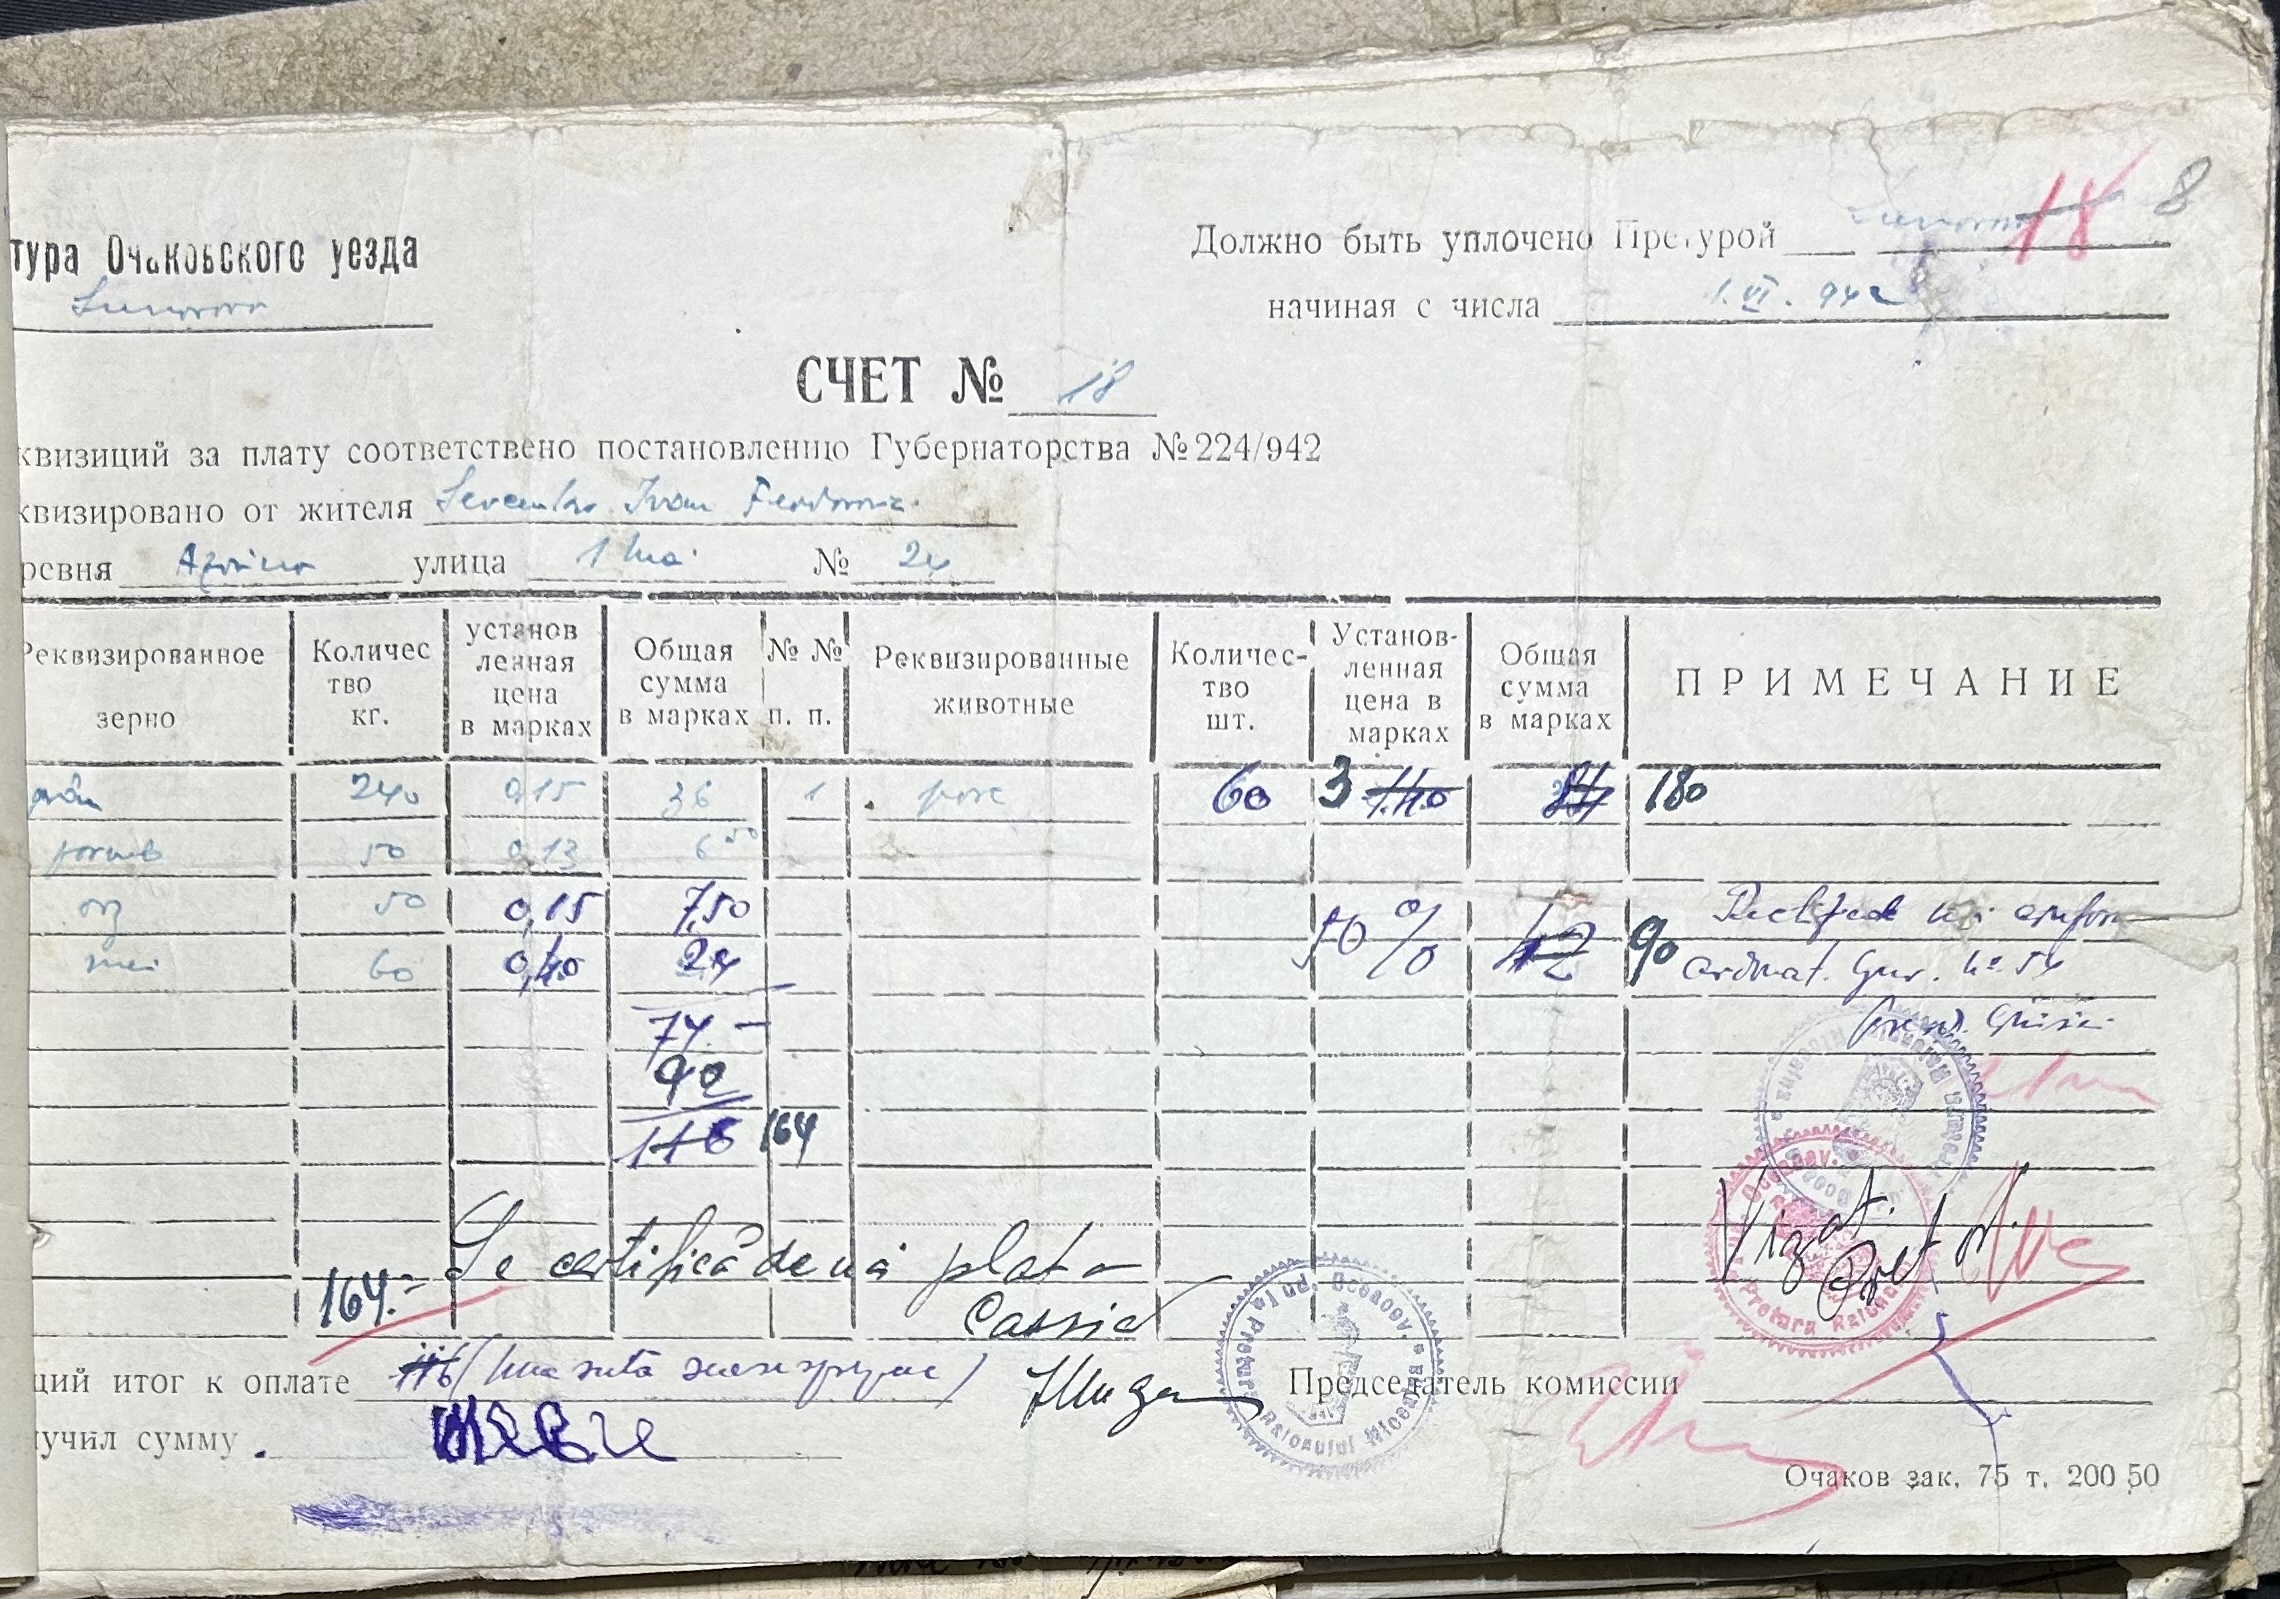 18 8
тура Очаковского уезда
Должно быть уплочено Претурой
начиная с числа 1.VI.942
СЧЕТ № 18
квизиций за плату соответствено постановлению Губернаторства № 224/942
квизировано от жителя Sevcenko Ivan Feodorovici
ревня улица 1 Mai № 24
Реквизированное зерно Количес тво кг. установ ленная цена в марках Общая сумма в марках №№ п. п. Реквизированные животные Количес- тво шт. Установ- ленная цена в марках Общая сумма в марках ПРИМЕЧАНИЕ
grâu 240 0,15 36 1 porc 60 3 1.40 84 180
porumb 50 0,13 6 50
orz 50 0,15 7,50 50% 42 90 Rectificat
mei 60 0,40 24 ordonat. Guv. No 54
74 –
92
116 164
Se certifică de noi plata
164.- Casier
Vizat. Pretor
щий итог к оплате 116 (una sută Председатель комиссии
лучил сумму
Pretura Raionului
Jud. Oceacov.
Очаков зак. 75 т. 200 50